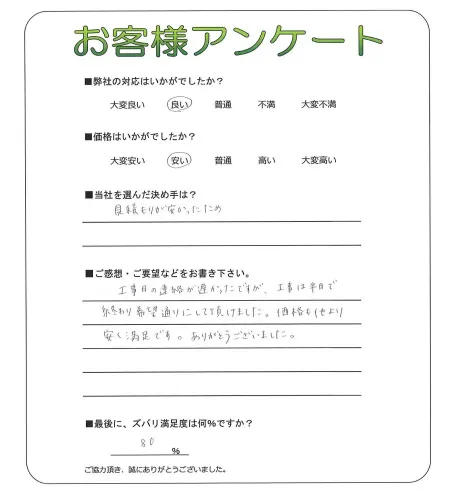 お客様アンケート
■弊社の対応はいかがでしたか？
大変良い 良い 普通 不満 大変不満
■価格はいかがでしたか？
大変安い 安い 普通 高い 大変高い
■当社を選んだ決め手は？
見積もりが安かったため
■ご感想・ご要望などをお書き下さい。
工事日の連絡が遅かったですが、工事は半日で
終わり希望通りにして頂けました。価格も他より
安く満足です。ありがとうございました。
■最後に、ズバリ満足度は何%ですか？
80
%
ご協力頂き、誠にありがとうございました。